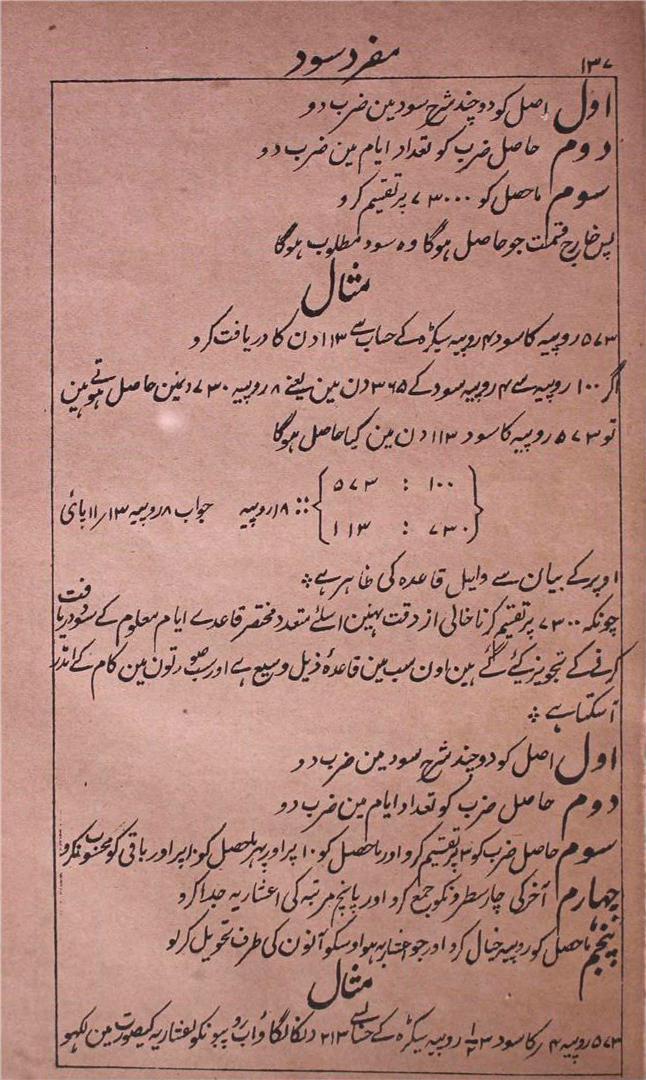 ۱۳۷ مفرد سود
اول اصل کو دو چند شرح سود مین ضرب دو
دوم حاصل ضرب کو تعداد ایام مین ضرب دو
سوم ماحصل کو ۷۳۰۰۰ پر تقسیم کرو
پس خارج قسمت جو حاصل ہوگا وہ سود مطلوب ہوگا
مثال
۵۷۳ روپیہ کا سود ۴ روپیہ سیکڑہ کے حساب سے ۱۱۳ دن کا دریافت کرو
اگر ۱۰۰ روپیہ سے ۴ روپیہ سود کے ۳۶۵ دن مین یعنے ۸ روپیہ ۷۳۰ دنمین حاصل ہوتے ہین
تو ۵۷۳ روپیہ کا سود ۱۱۳ دن مین کیا حاصل ہوگا
۱۰۰ : ۵۷۳
۷۳۰ : ۱۱۳
:: ۸ روپیہ جواب ۸ روپیہ ۱۳ ر ۱۱ پائی
اوپر کے بیان سے دلیل قاعدہ کی ظاہر ہے
چونکہ ۷۳۰۰۰ پر تقسیم کرنا خالی از دقت نہین اسلئے متعدد مختصر قاعدے ایام معلوم کے سود دریافت
کرنے کے تجویز کیئے گئے ہین اون سب مین قاعدۂ ذیل وسیع ہے اور سب صورتون مین کام کے اندر
آسکتا ہے
اول اصل کو دو چند شرح سود مین ضرب دو
دوم حاصل ضرب کو تعداد ایام مین ضرب دو
سوم حاصل ضرب کو ۳ پر تقسیم کرو اور ماحصل کو ۱۰ پر اور پہر ماحصل کو ۱۰ پر اور باقی کو محسوب نکرو
چہارم آخر کی چار سطرونکو جمع کرو اور پانچ مرتبہ کی اعشاریہ جدا کرو
پنجم ماحصل کو روپیہ خیال کرو اور جو اعشاریہ ہو اوسکو آنون کی طرف تحویل کرلو
مثال
۵۷۳ روپیہ ۴ ر کا سود ۳ ۱/۲ روپیہ سیکڑہ کے حساب سے ۲۱۳ دنکا لگاؤ اب روپیونکو اعشاریہ کیصورت مین لکھو